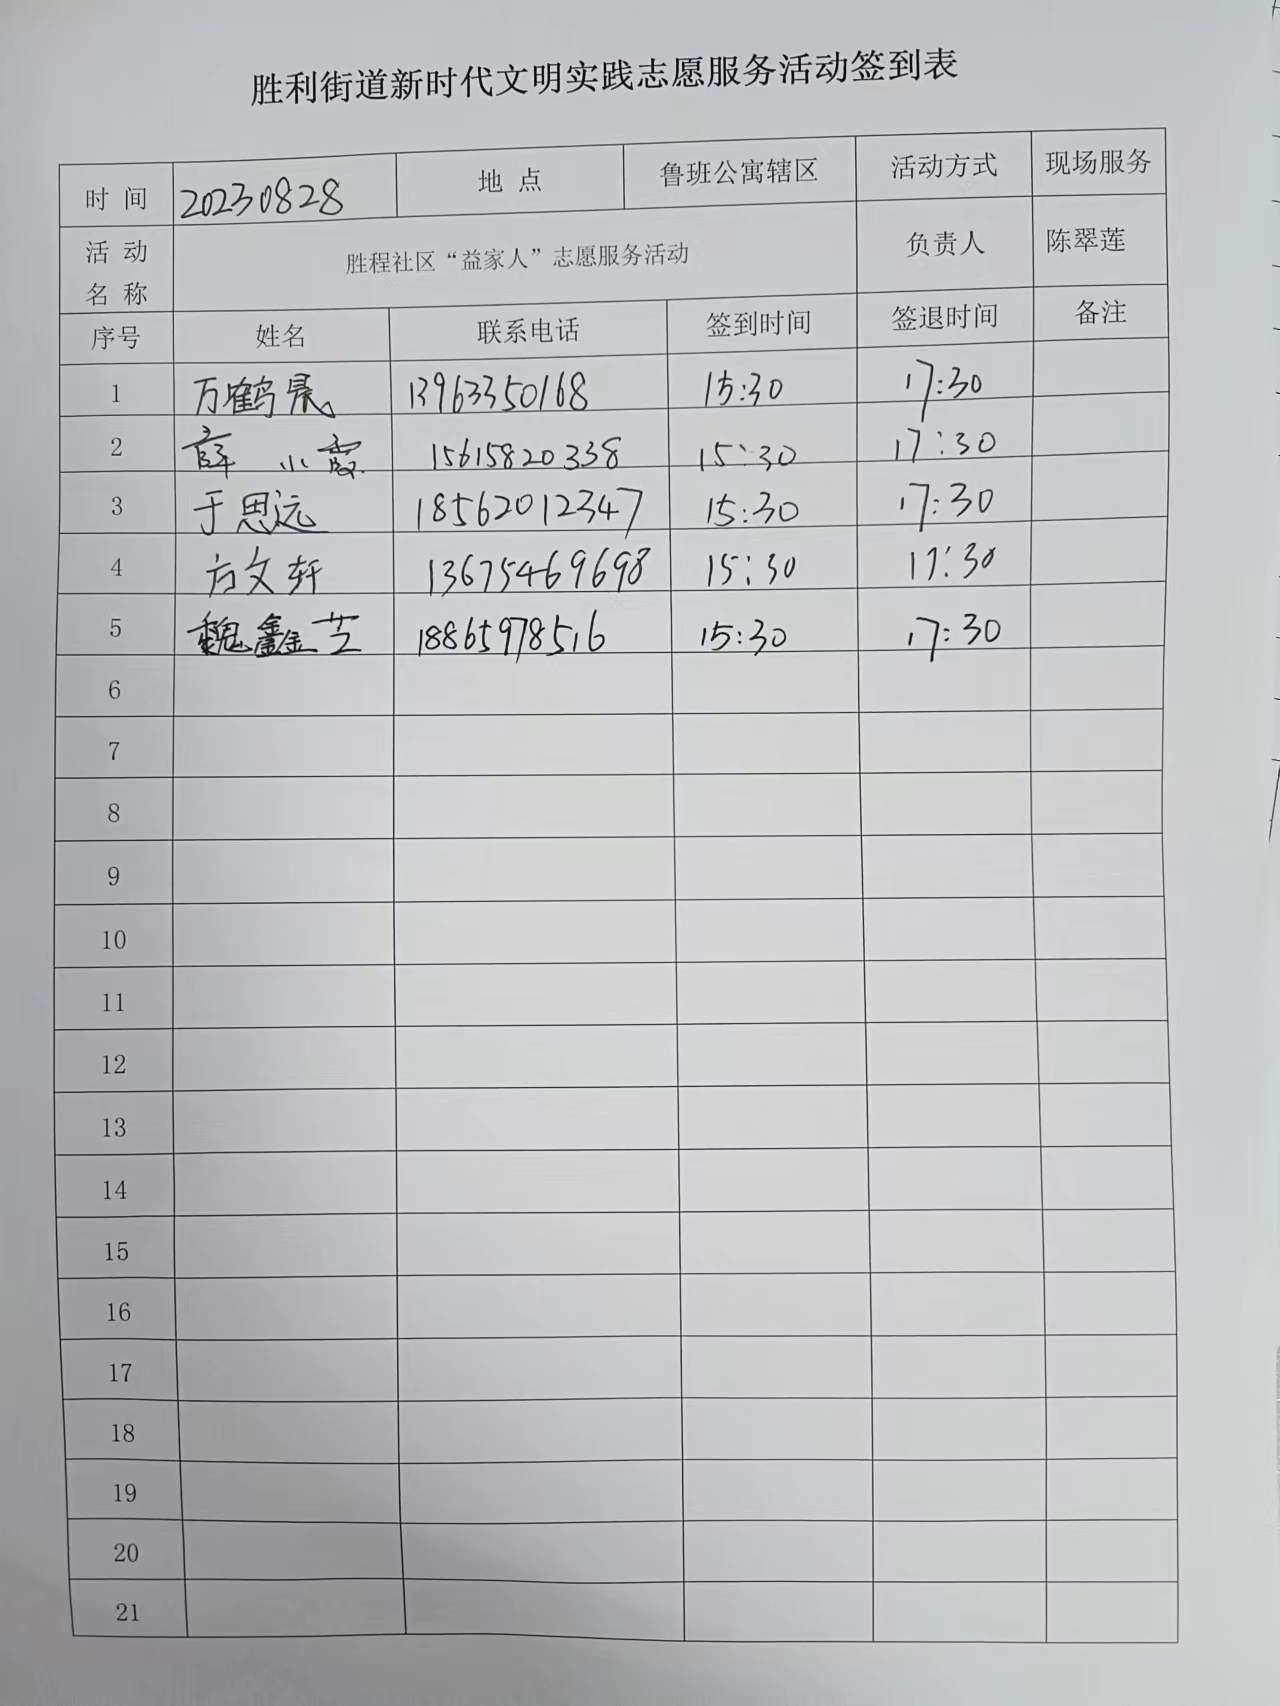 胜利街道新时代文明实践志愿服务活动签到表
时 间 20230828 地 点 鲁班公寓辖区 活动方式 现场服务
活 动 名 称 胜程社区“益家人”志愿服务活动 负责人 陈翠莲
序号 姓名 联系电话 签到时间 签退时间 备注
1 万鹤晨 13963350168 15:30 17:30
2 薛小霞 15615820338 15:30 17:30
3 于思远 18562012347 15:30 17:30
4 方文轩 13675469698 15:30 17:30
5 魏鑫芝 18865978516 15:30 17:30
6
7
8
9
10
11
12
13
14
15
16
17
18
19
20
21